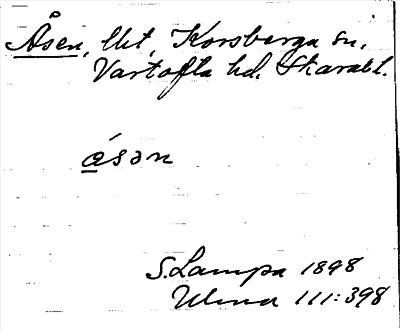 Åsen, lht, Korsberga sn,
Vartofta hd, Skarab l.
åsən
S. Lampa 1898
Ulma 111:398